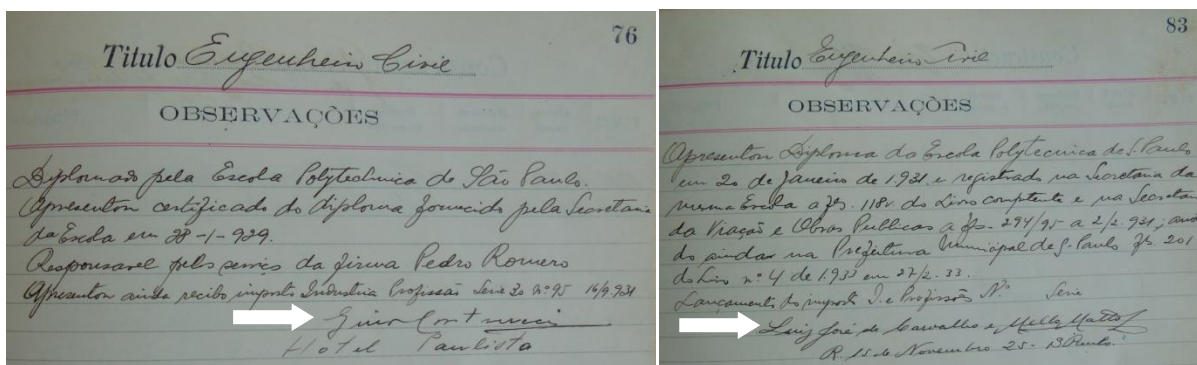 76
Titulo Engenheiro Civil
OBSERVAÇÕES
Diplomado pela Escola Polytechnica de São Paulo.
Apresentou certificado do diploma fornecido pela Secretaria
da Escola em 28-1-929.
Responsavel pelos serviços da firma Pedro Romero
Apresentou ainda recibo imposto Industria Profissão Serie 20 nº 95 16/9.931
Hotel Paulista
83
Titulo Engenheiro Civil
OBSERVAÇÕES
Apresentou Diploma da Escola Polytecnica de S. Paulo
em 20 de Janeiro de 1.931 e registrado na Secretaria da
mesma Escola a fs. 118v. do Livro competente e na Secretaria
da Viação e Obras Publicas a fs. 294/95 a 2/2.931;
do ainda na Prefeitura Municipal de S. Paulo fs. 201
do Livro nº 4 de 1.933 em 27/2.33.
Lançamento do imposto I. e Profissões Nº Serie
Luiz José de Carvalho e Mello Mattos
R. 15 de Novembro 25 - S. Paulo.